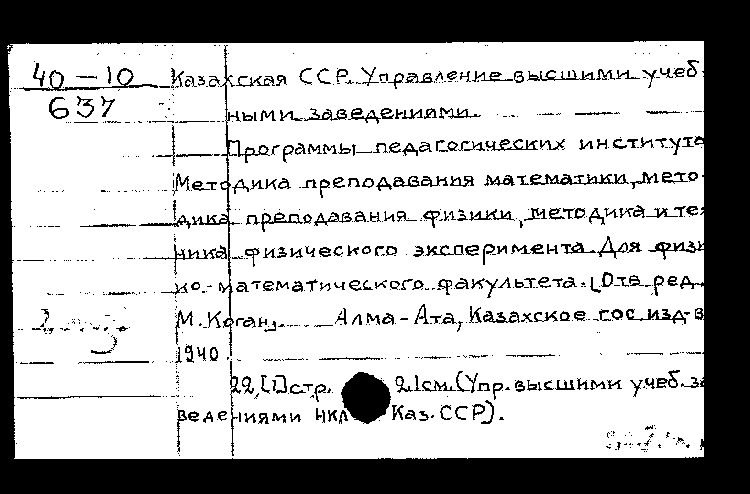 40-10
637
Казахская ССР. Управление высшими учеб-
ными заведениями.
Программы педагогических институто
Методика преподавания математики, мето-
дика преподавания физики, методика и тех
ника физического эксперимента. Для физи
ко-математического факультета. [Отв. ред.
М. Коган]. Алма-Ата, Казахское гос. изд-в
1940.
22, [1] стр. 21 см. (Упр. высшими учеб. за
ведениями НК Каз. ССР).